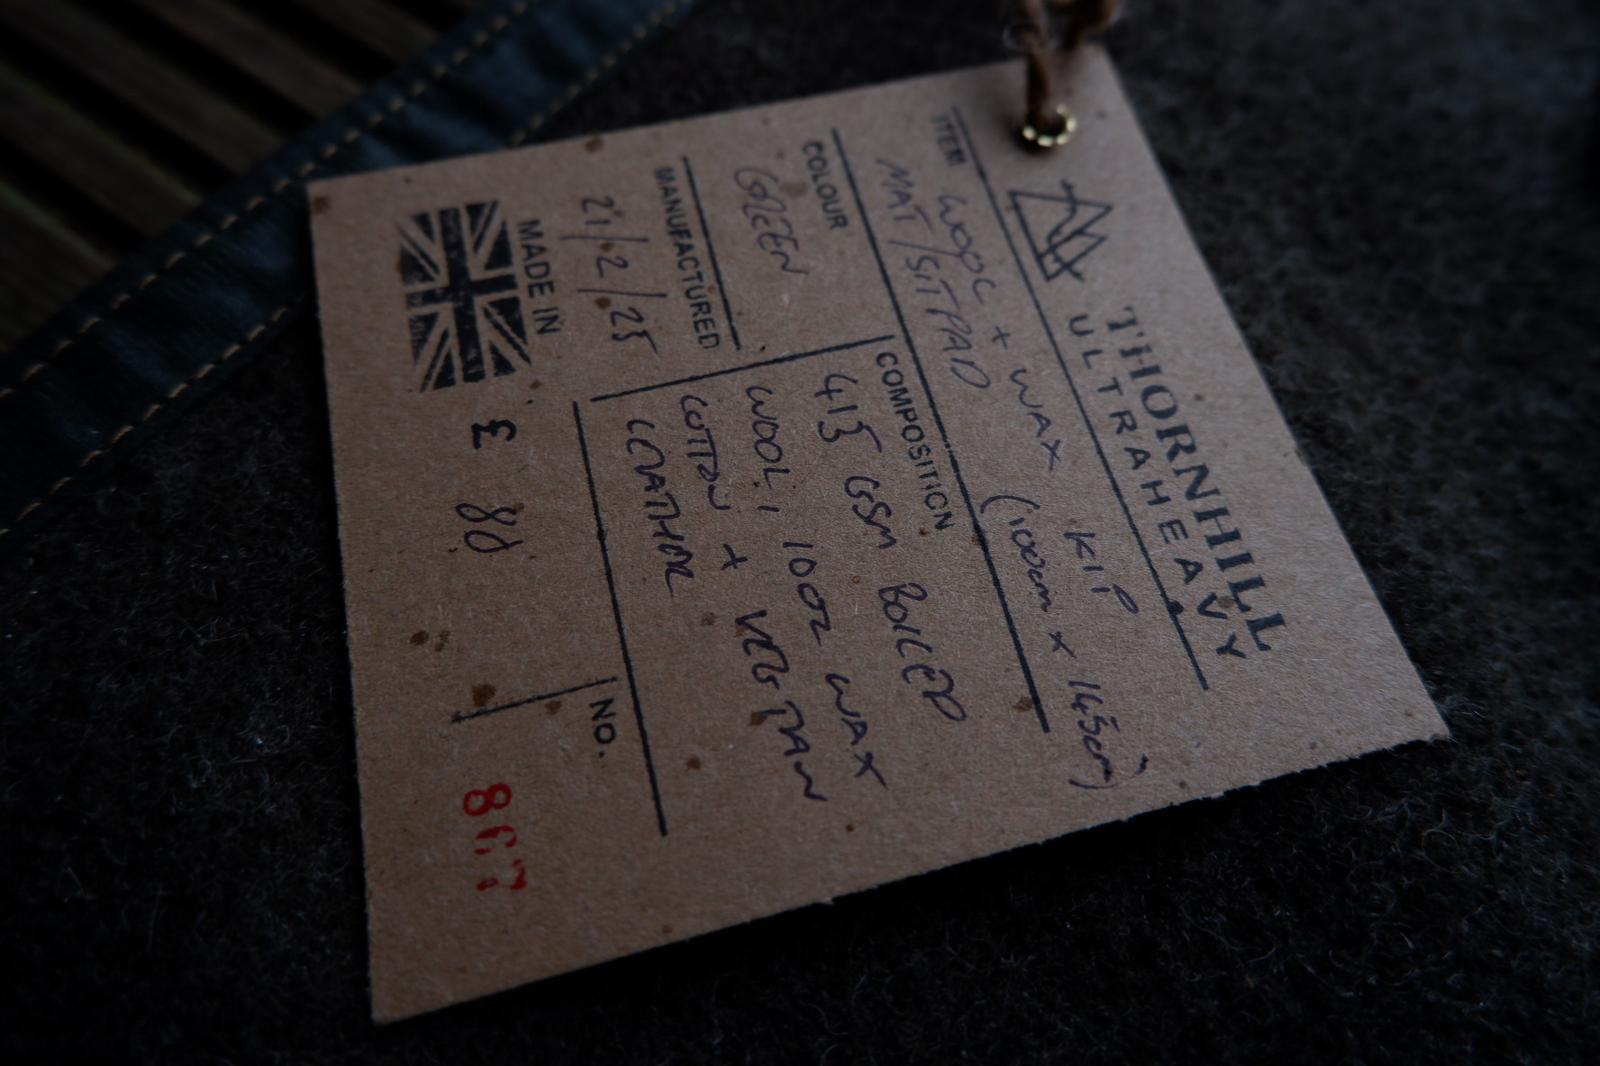 THORNHILL
ULTRAHEAVY
ITEM WOOL + WAX KIP
MAT/SITPAD (100cm x 145cm)
COLOUR
GREEN
COMPOSITION
415 GSM BOILED
WOOL; 10OZ WAX
COTTON + VEG TAN
LEATHER
MANUFACTURED
21/2/25
MADE IN
£ 88
NO.